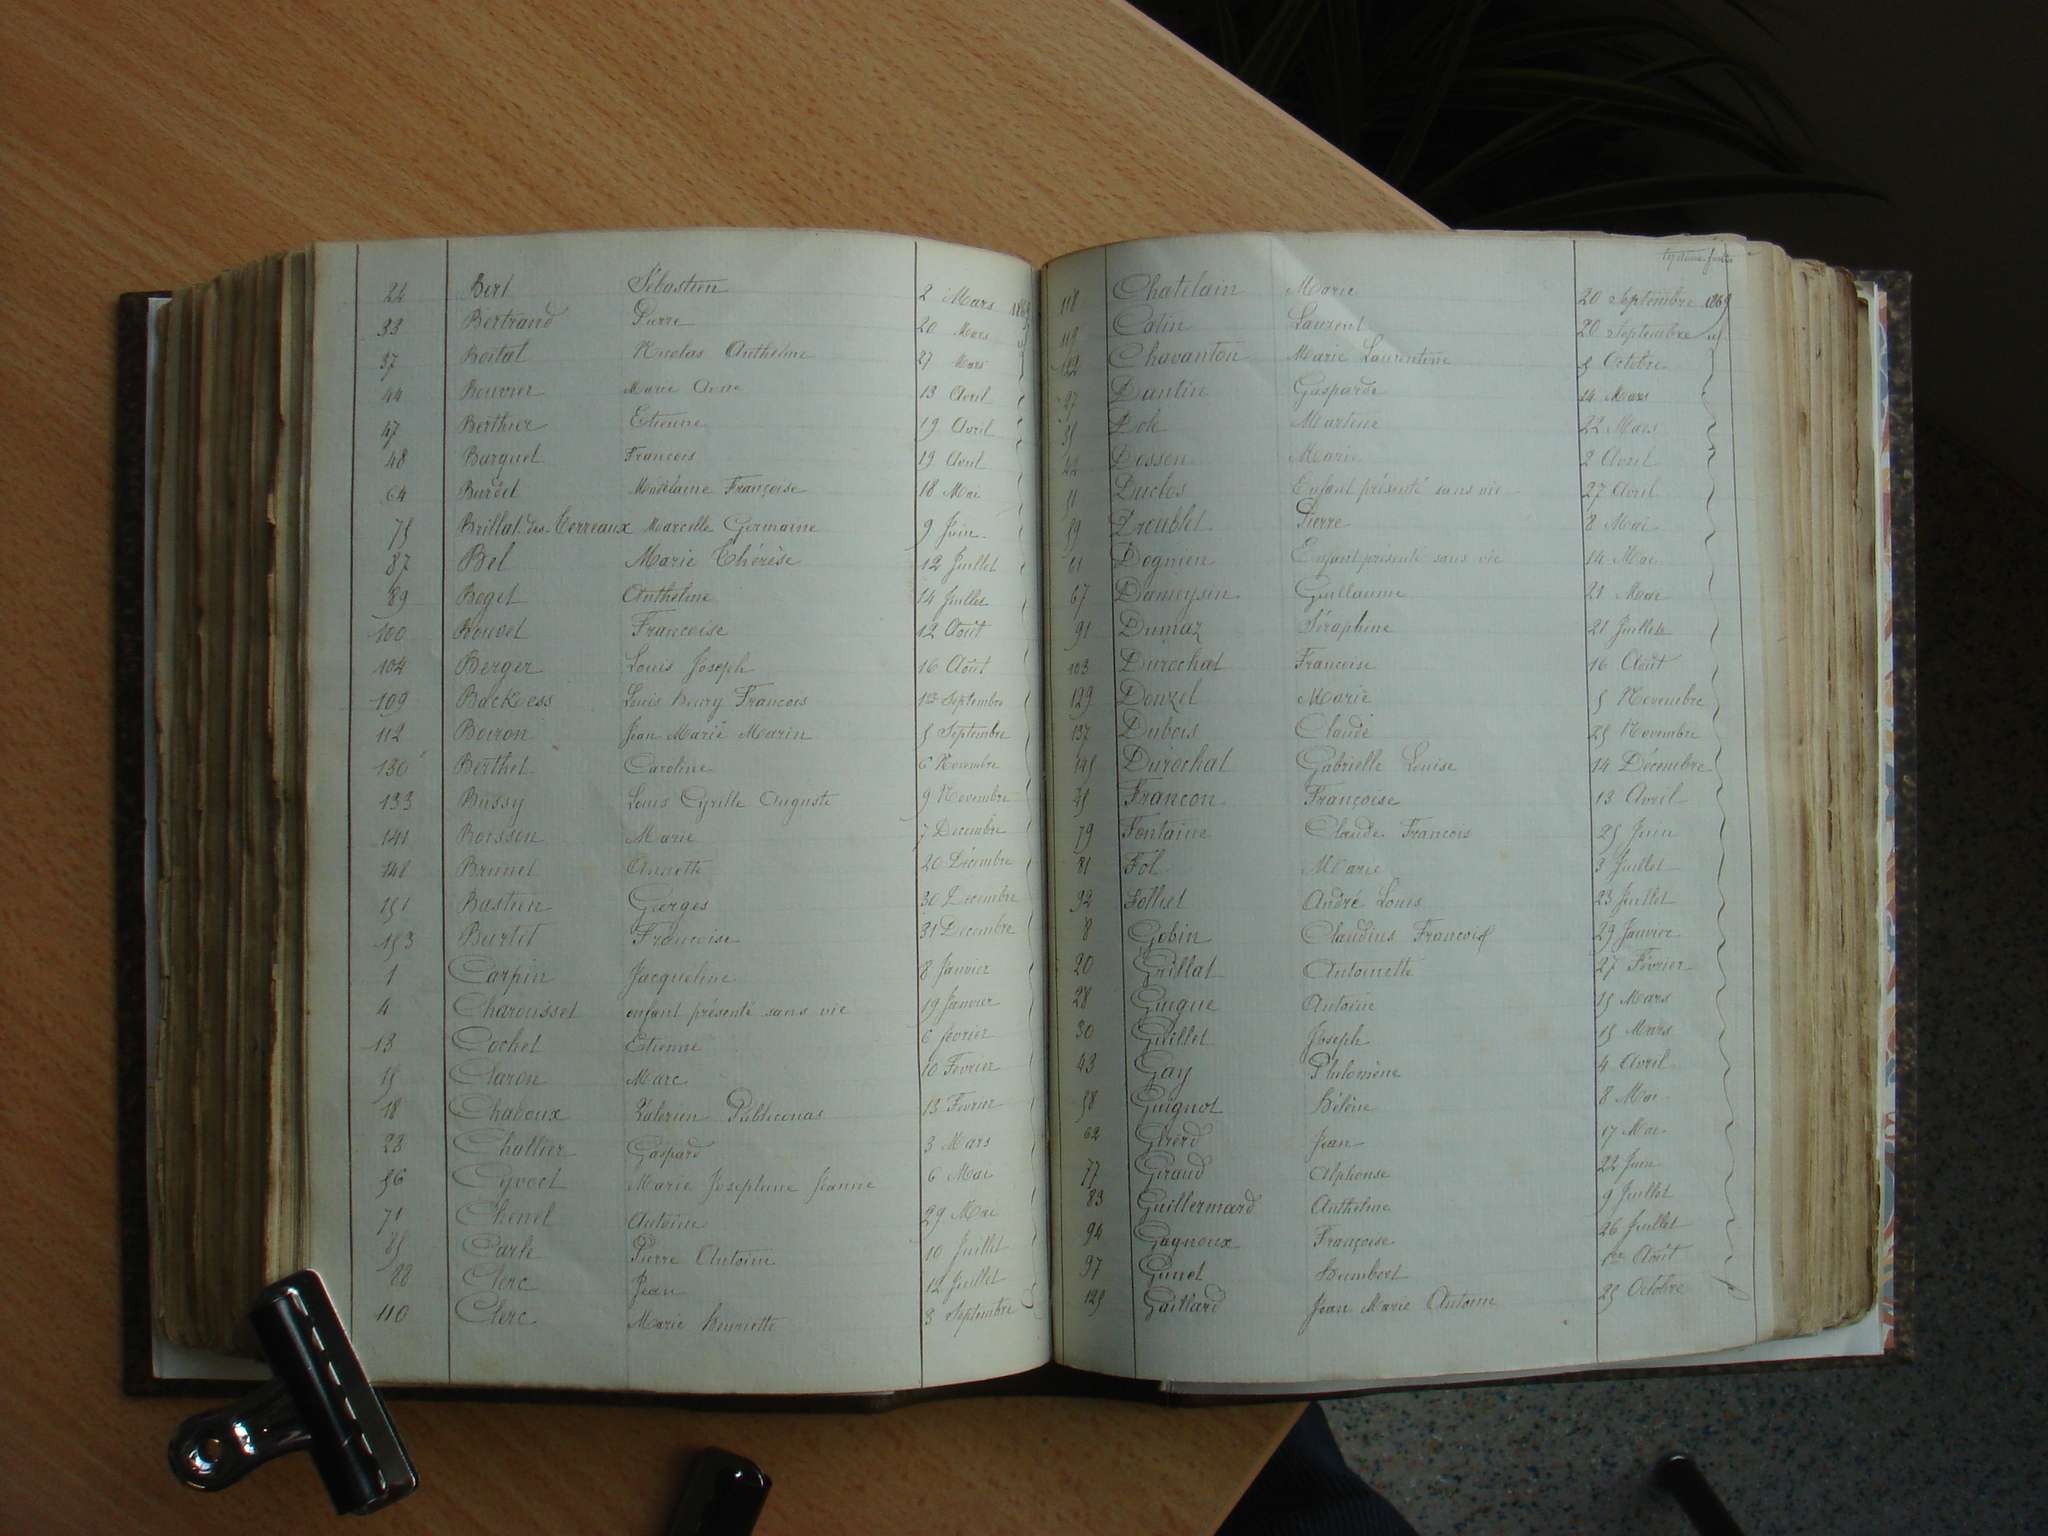 24 Bert Sébastien 2 Mars 1869
33 Bertrand Pierre 20 Mars id
37 Boitat Nicolas Anthelme 27 Mars
44 Bouvier Marie Anne 13 Avril
47 Berthier Etienne 19 Avril
48 Burquet Francois 19 Avril
64 Burdet Madelaine Françoise 18 Mai
75 Brillat-des-Terreaux Marcelle Germaine 9 Juin
87 Bel Marie Thérèse 12 Juillet
89 Boget Anthelme 14 Juillet
100 Bouvet Francoise 12 Août
104 Berger Louis Joseph 16 Août
109 Backess Louis henry Francois 1er Septembre
112 Boiron Jean Marie Marin 5 Septembre
130 Berthet Caroline 6 Novembre
133 Bussy Louis Cyrille Auguste 9 Novembre
141 Boisson Marie 7 Décembre
148 Brunet Annette 20 Décembre
151 Bastien Georges 30 Décembre
153 Burtet Francoise 31 Décembre
1 Carpin Jacqueline 8 Janvier
4 Charousset enfant présenté sans vie 19 Janvier
13 Cochet Etienne 6 fevrier
15 Claron Marc 10 Fevrier
18 Chaboux 13 Fevrier
23 Challier Gaspard 3 Mars
56 Cyvoct Marie Josephine Jeanne 6 Mai
71 Chenel Antoine 29 Mai
85 Carle Pierre Antoine 10 Juillet
88 Clerc Jean 12 Juillet
110 Clerc Marie henriette 3 Septembre
118 Chatelain Marie 20 Septembre 1869
119 Catin Laurent 20 Septembre id
122 Chavanton Marie Laurentine 5 Octobre
27 Dantin Gasparde 14 Mars
35 Dok Martine 22 Mars
42 Dosson Marie 2 Avril
51 Duclos Enfant présenté sans vie 27 Avril
59 Droublet Pierre 8 Mai
61 Dognien Enfant présenté sans vie 14 Mai
67 Dameysin Guillaume 21 Mai
91 Dumaz Séraphine 21 Juillet
103 Durochat Francoise 16 Août
129 Douzel Marie 5 Novembre
137 Dubois Claude 25 Novembre
145 Durochat Gabrielle Louise 14 Décembre
45 Francon Françoise 13 Avril
79 Fontaine Claude Francois 25 Juin
81 Fol Marie 3 Juillet
92 Folliet André Louis 23 Juillet
8 Gobin Claudius Francois 29 Janvier
20 Grillat Antoinette 27 Février
28 Guigue Antoine 15 Mars
30 Guillet Joseph 15 Mars
43 Gay Philomène 4 Avril
58 Guignot Hélène 8 Mai
62 Girerd Jean 17 Mai
77 Giraud Alphonse 22 Juin
83 Guillermard Anthelme 9 Juillet
94 Gagnoux Françoise 26 Juillet
97 Gunet humbert 1er Août
125 Gaillard Jean Marie Antoine 25 Octobre